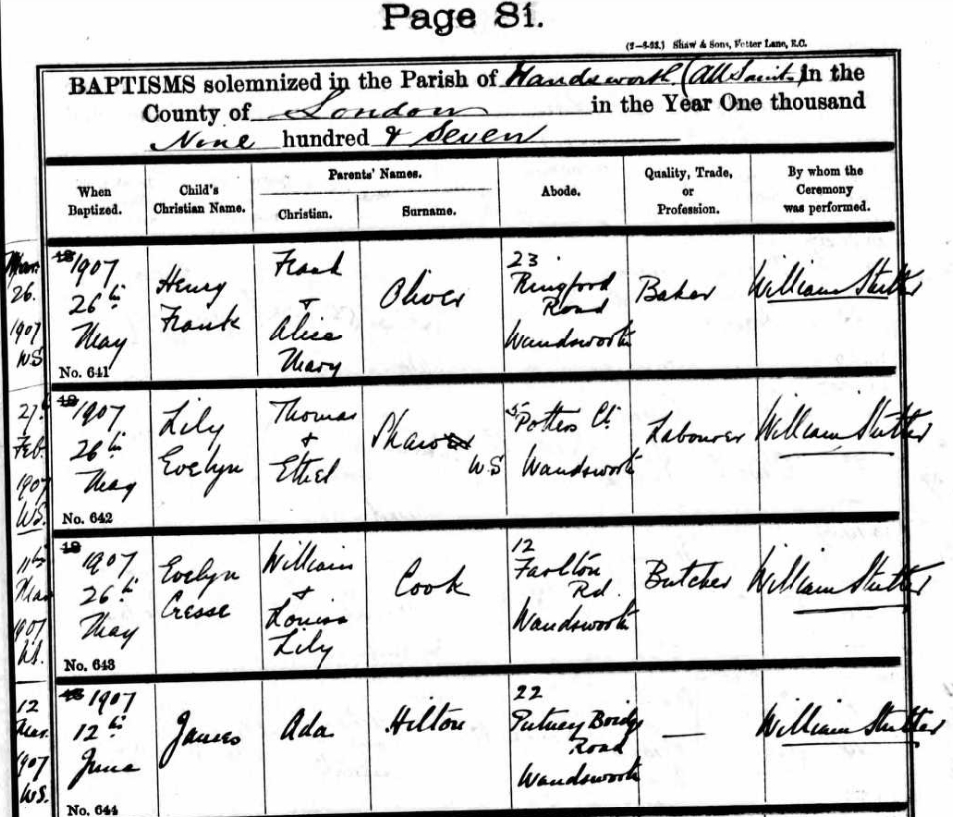 Page 81.
(2-6-03.) Shaw & Sons, Fetter Lane, E.C.
BAPTISMS solemnized in the Parish of Wandsworth (All Saints) in the
County of London in the Year One thousand
Nine hundred & Seven
When Baptized. Child's Christian Name. Parents' Names. Abode. Quality, Trade, or Profession. By whom the Ceremony was performed.
Christian. Surname.
Mar. 26. 1907 WS
18 1907 26th May
No. 641
Henry Frank
Frank + Alice Mary
Oliver
23 Ringford Road Wandsworth
Baker
William Stutter
27th Feb. 1907 WS.
18 1907 26th May
No. 642
Lily Evelyn
Thomas + Ethel
Shaw WS
5 Potters Ct. Wandsworth
Labourer
William Stutter
11th Mar 1907
18 1907 26th May
No. 643
Evelyn Cresse
William + Louisa Lily
Cook
12 Farlton Rd. Wandsworth
Butcher
William Stutter
12 Mar. 1907 WS.
18 1907 12th June
No. 644
James
Ada
Hilton
22 Putney Bridge Road Wandsworth
—
William Stutter